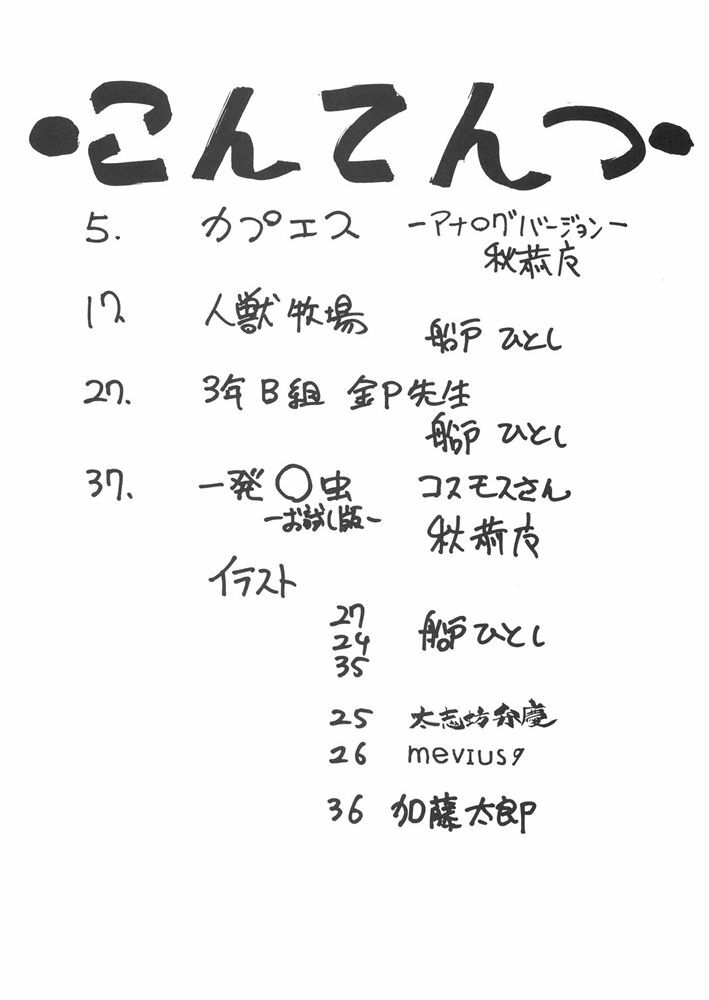 ・こんてんつ・
5. カプエス －アナログバージョン－
秋恭庵
17. 人獣牧場
船戸ひとし
27. 3年B組 金P先生
船戸ひとし
37. 一発〇虫 コスモスさん
－お試し版－
秋恭庵
イラスト
27
24 船戸ひとし
35
25 太志坊弁慶
26 mevius9
36 加藤太郎